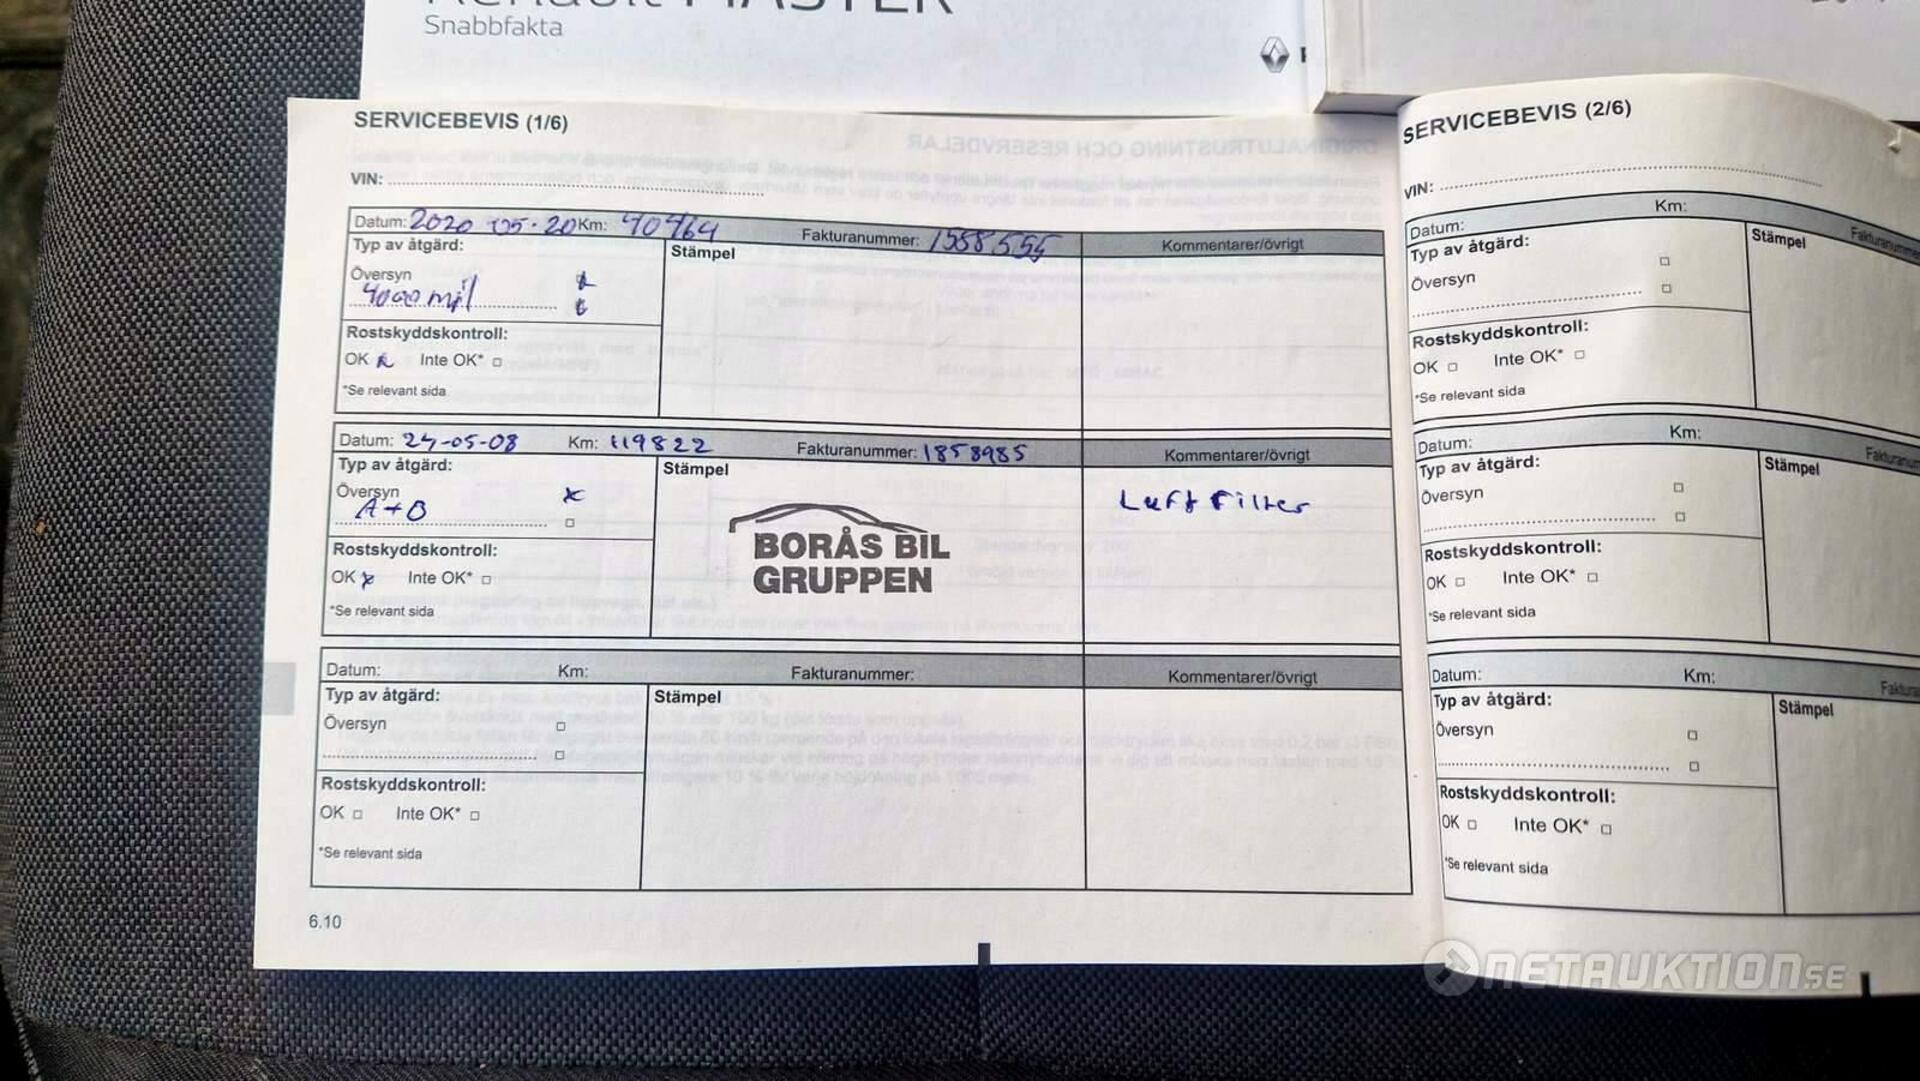 Renault MASTER
Snabbfakta
SERVICEBEVIS (1/6)
VIN:
Datum: 2020 05-20 Km: 40464 Fakturanummer: 1558555 Kommentarer/övrigt
Typ av åtgärd: Stämpel
Översyn
4000 mil
Rostskyddskontroll:
OK Inte OK*
*Se relevant sida
Datum: 24-05-08 Km: 119822 Fakturanummer: 1858985 Kommentarer/övrigt
Typ av åtgärd: Stämpel
Översyn
A+B
Luft Filter
BORÅS BIL
GRUPPEN
Rostskyddskontroll:
OK Inte OK*
*Se relevant sida
Datum: Km: Fakturanummer: Kommentarer/övrigt
Typ av åtgärd: Stämpel
Översyn
Rostskyddskontroll:
OK Inte OK*
*Se relevant sida
6.10
SERVICEBEVIS (2/6)
VIN:
Datum: Km: Fakturanummer
Typ av åtgärd: Stämpel
Översyn
Rostskyddskontroll:
OK Inte OK*
*Se relevant sida
Datum: Km:
Typ av åtgärd: Stämpel
Översyn
Rostskyddskontroll:
OK Inte OK*
*Se relevant sida
Datum: Km:
Typ av åtgärd: Stämpel
Översyn
Rostskyddskontroll:
OK Inte OK*
*Se relevant sida
NETAUKTION.SE